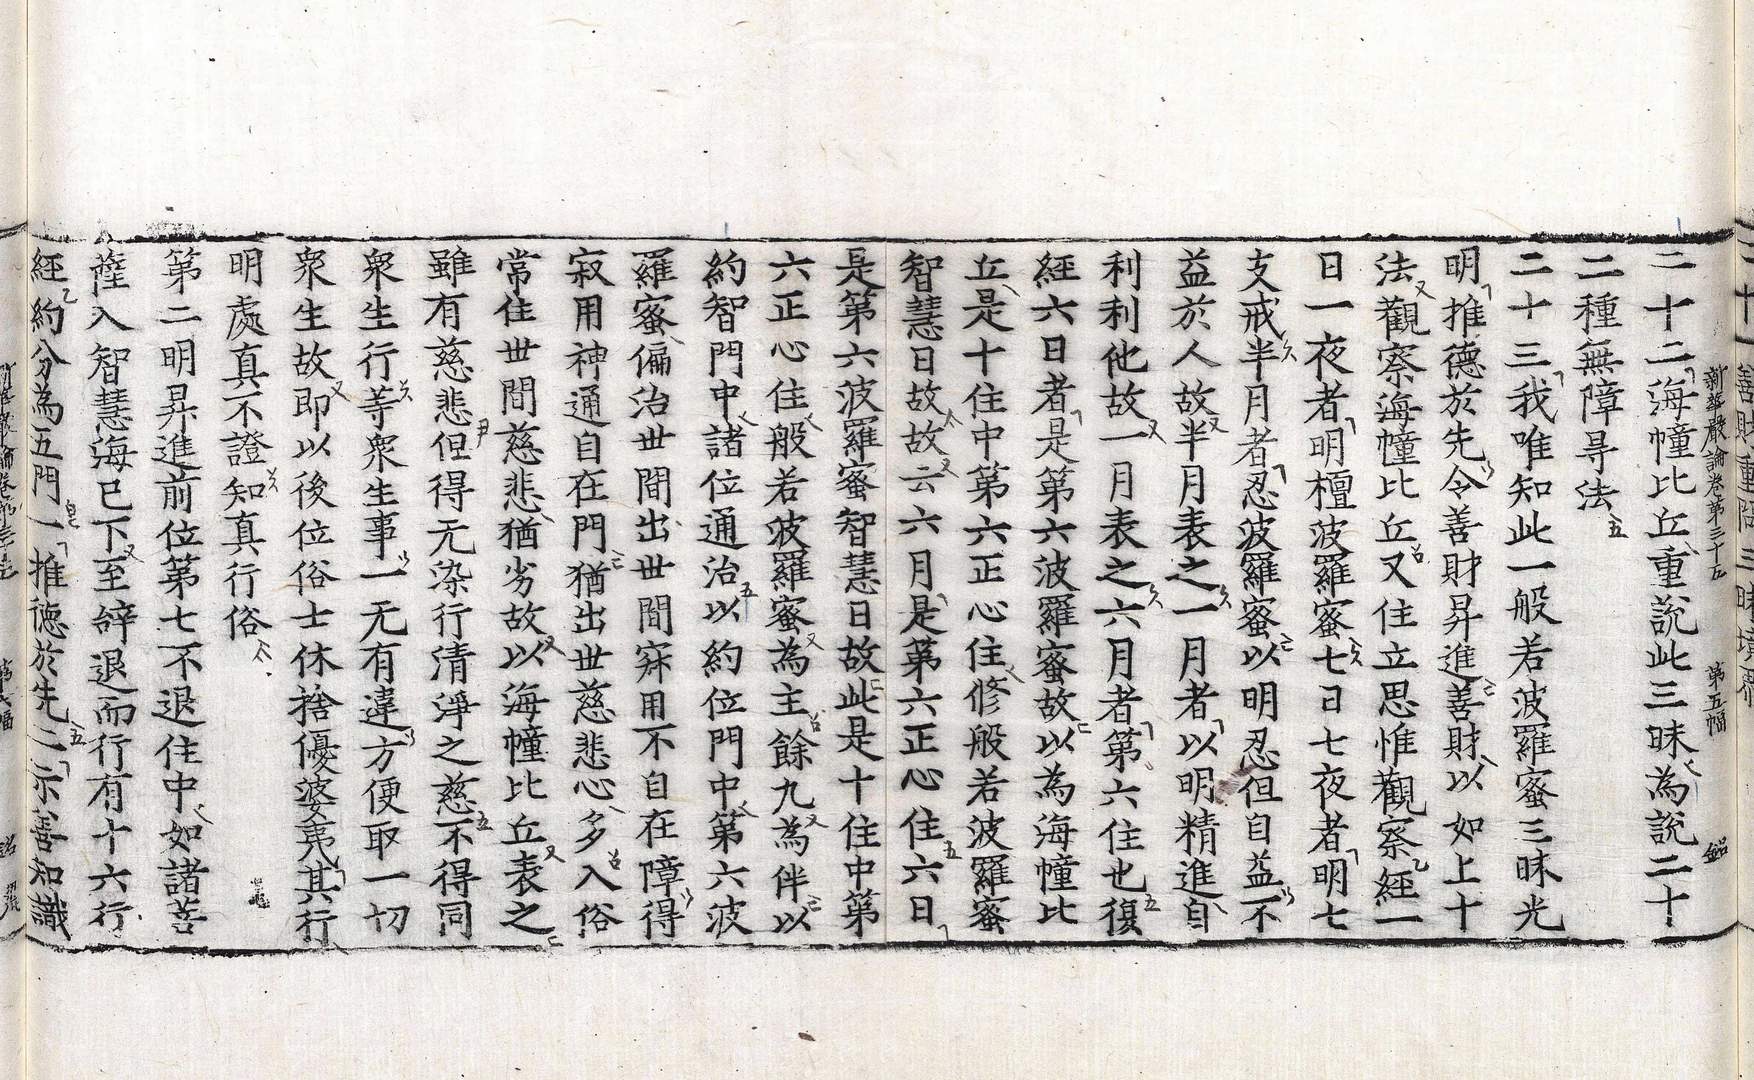 新華嚴論卷第三十五 第五幅 銘
二十二海幢比丘重說此三昧為說二十
二種無障㝵法
二十三我唯知此一般若波羅蜜三昧光
明推德於先令善財昇進善財以如上十
法觀察海幢比丘又住立思惟觀察經一
日一夜者明檀波羅蜜七日七夜者明七
支戒半月者忍波羅蜜以明忍但自益不
益於人故半月表之一月者以明精進自
利利他故一月表之六月者第六住也復
經六日者是第六波羅蜜故以為海幢比
丘是十住中第六正心住修般若波羅蜜
智慧日故故云六月是第六正心住六日
是第六波羅蜜智慧日故此是十住中第
六正心住般若波羅蜜為主餘九為伴以
約智門中諸位通治以約位門中第六波
羅蜜偏治世間出世間寂用不自在障得
寂用神通自在門猶出世慈悲心多入俗
常住世間慈悲猶劣故以海幢比丘表之
雖有慈悲但得无染行清淨之慈不得同
衆生行等衆生事一无有違方便取一切
衆生故即以後位俗士休捨優婆夷其行
明處真不證知真行俗
第二明昇進前位第七不退住中如諸菩
薩入智慧海已下至辝退而行有十六行
經約分為五門一推德於先二示善知識